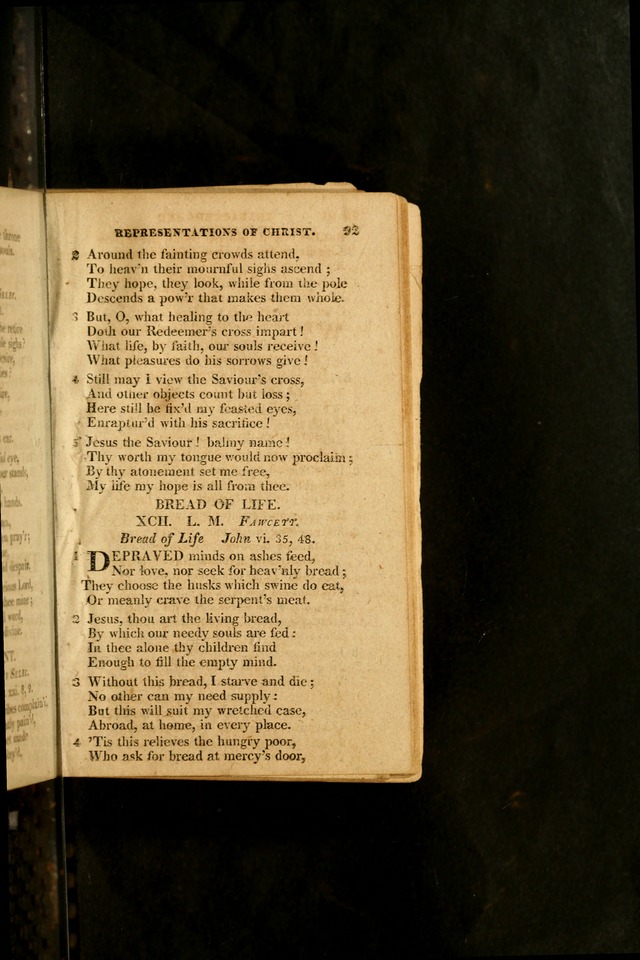 REPRESENTATIONS OF CHRIST. 92
2 Around the fainting crowds attend,
To heav'n their mournful sighs ascend ;
They hope, they look, while from the pole
Descends a pow'r that makes them whole.
3 But, O, what healing to the heart
Doth our Redeemer's cross impart !
What life, by faith, our souls receive !
What pleasures do his sorrows give !
4 Still may I view the Saviour's cross,
And other objects count but loss ;
Here still be fix'd my feasted eyes,
Enraptur'd with his sacrifice !
5 Jesus the Saviour ! balmy name !
Thy worth my tongue would now proclaim ;
By thy atonement set me free,
My life my hope is all from thee.
BREAD OF LIFE.
XCII. L. M. FAWCETT.
Bread of Life John vi. 35, 48.
1 DEPRAVED minds on ashes feed,
Nor love, nor seek for heav'nly bread ;
They choose the husks which swine do eat,
Or meanly crave the serpent's meat.
2 Jesus, thou art the living bread,
By which our needy souls are fed :
In thee alone thy children find
Enough to fill the empty mind.
3 Without this bread, I starve and die ;
No other can my need supply :
But this will suit my wretched case,
Abroad, at home, in every place.
4 'Tis this relieves the hungry poor,
Who ask for bread at mercy's door,